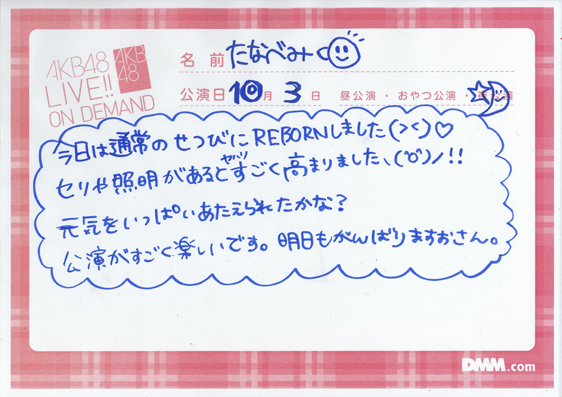 AKB48
LIVE!!
ON DEMAND
AKB
48
名前 たなべみ
公演日 10月 3日 昼公演・おやつ公演・夜公演
今日は通常のせつびにREBORNしました(><)♡
セリや照明があるとヤッパすごく高まりました、(°o°)ノ!!
元気をいっぱいあたえられたかな?
公演がすごく楽しいです。明日もがんばりますおさん。
DMM.com